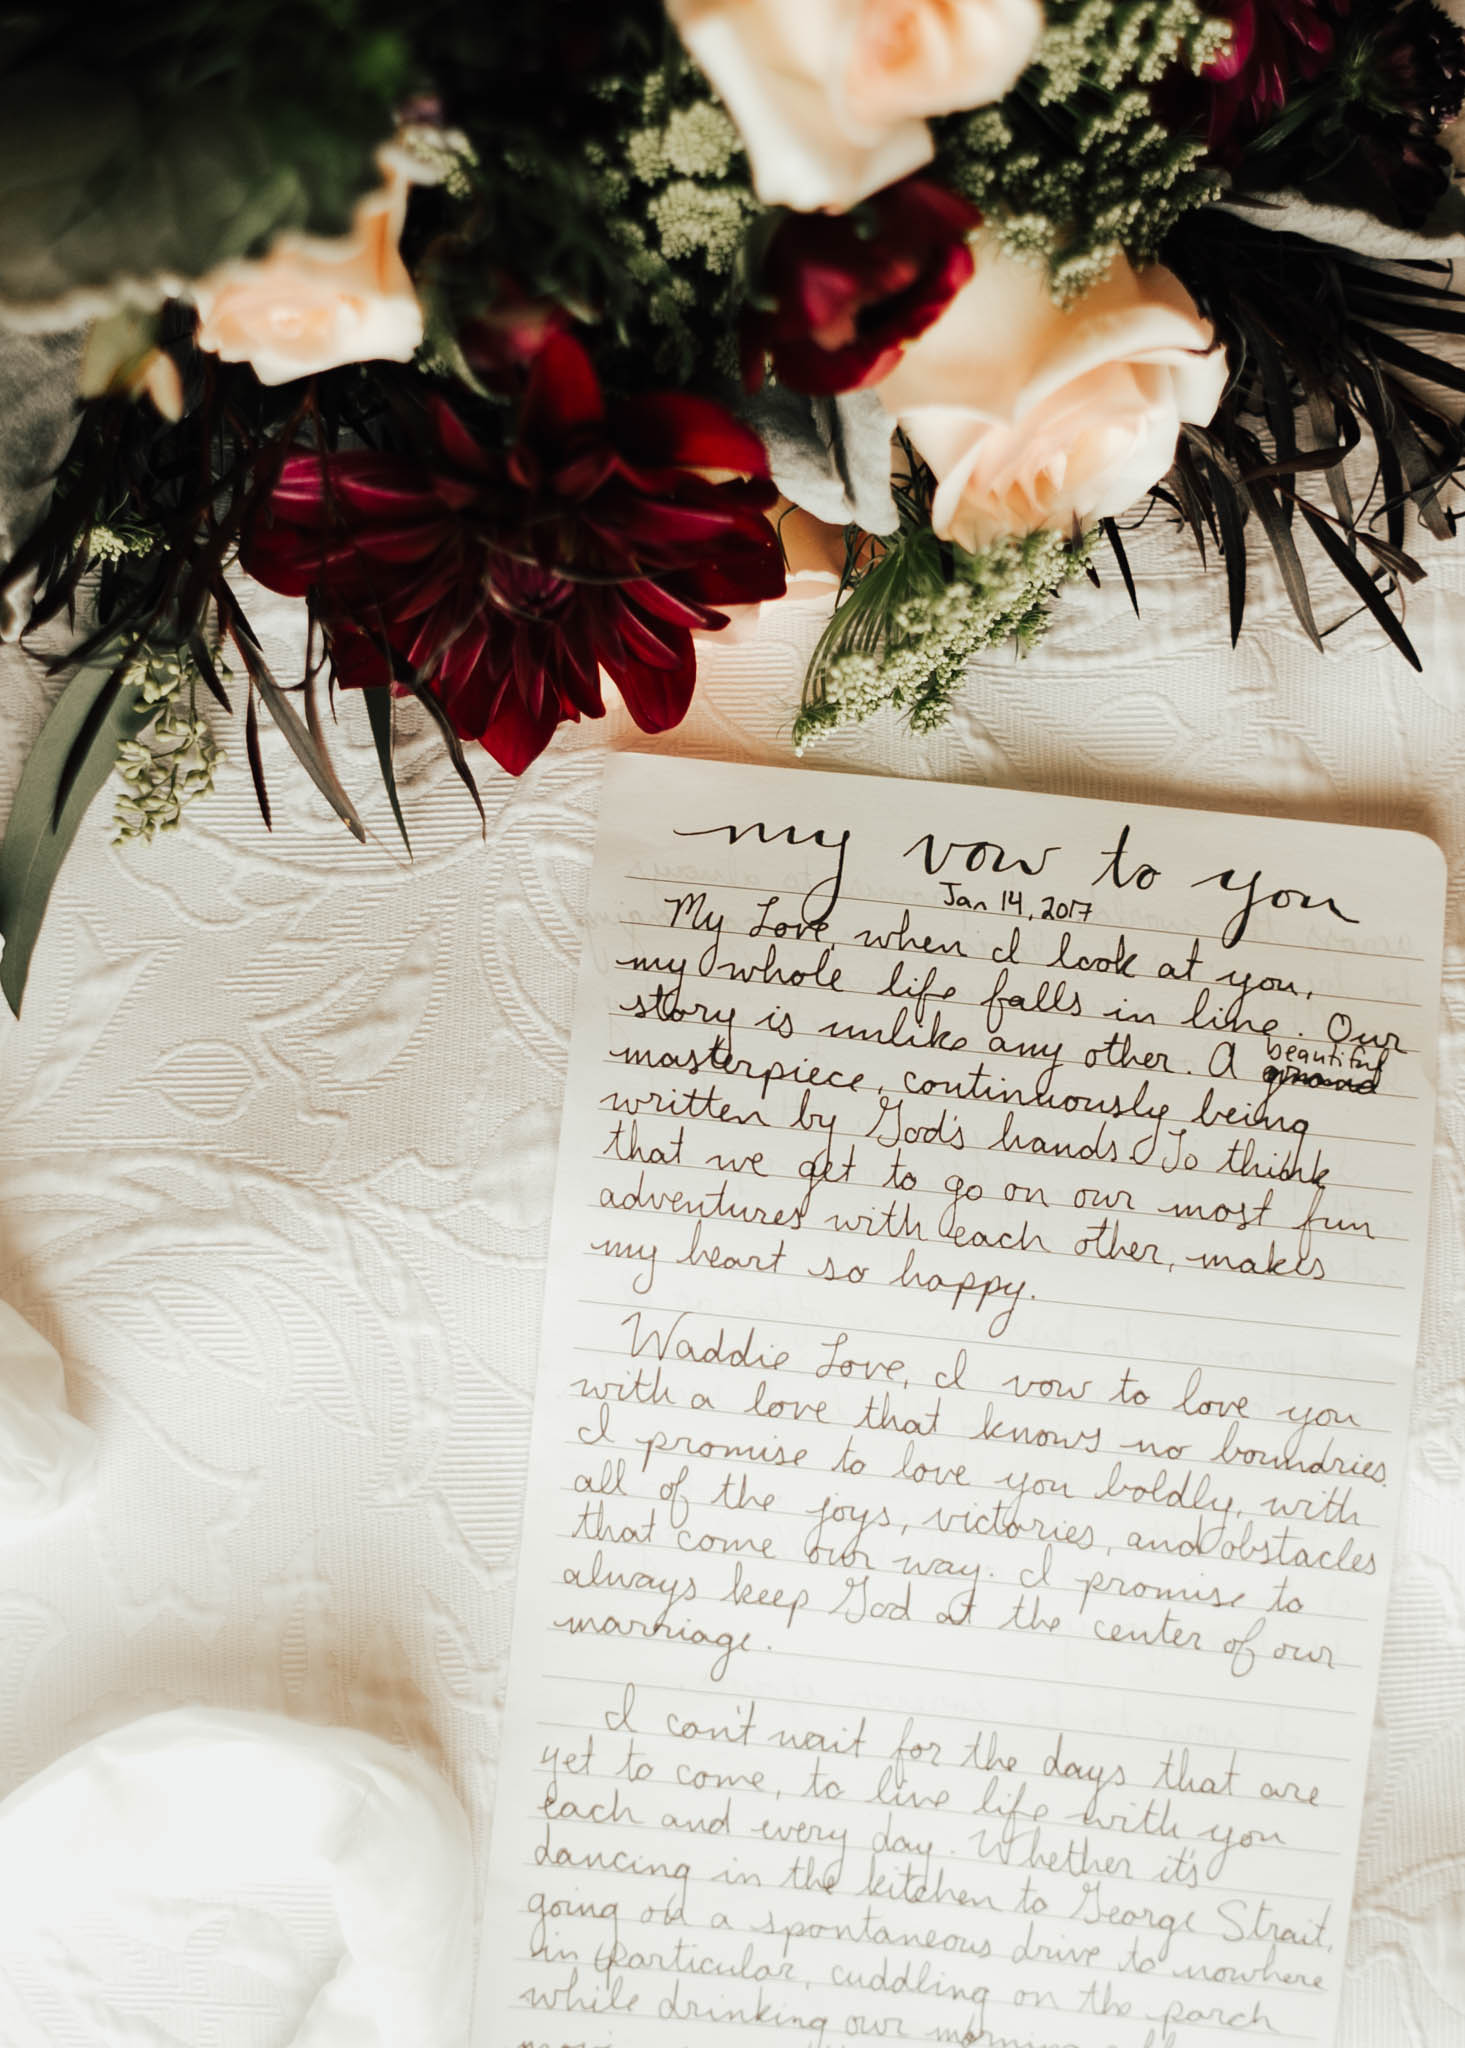 my vow to you
Jan 14, 2017
My Love, when I look at you,
my whole life falls in line. Our
story is unlike any other. A beautiful
masterpiece, continuously being
written by God's hands. To think
that we get to go on our most fun
adventures with each other, makes
my heart so happy.
Waddie Love, I vow to love you
with a love that knows no boundries.
I promise to love you boldly, with
all of the joys, victories, and obstacles
that come our way. I promise to
always keep God at the center of our
marriage.
I can't wait for the days that are
yet to come, to live life with you
each and every day. Whether it's
dancing in the kitchen to George Strait,
going on a spontaneous drive to nowhere
in particular, cuddling on the porch
while drinking our morning